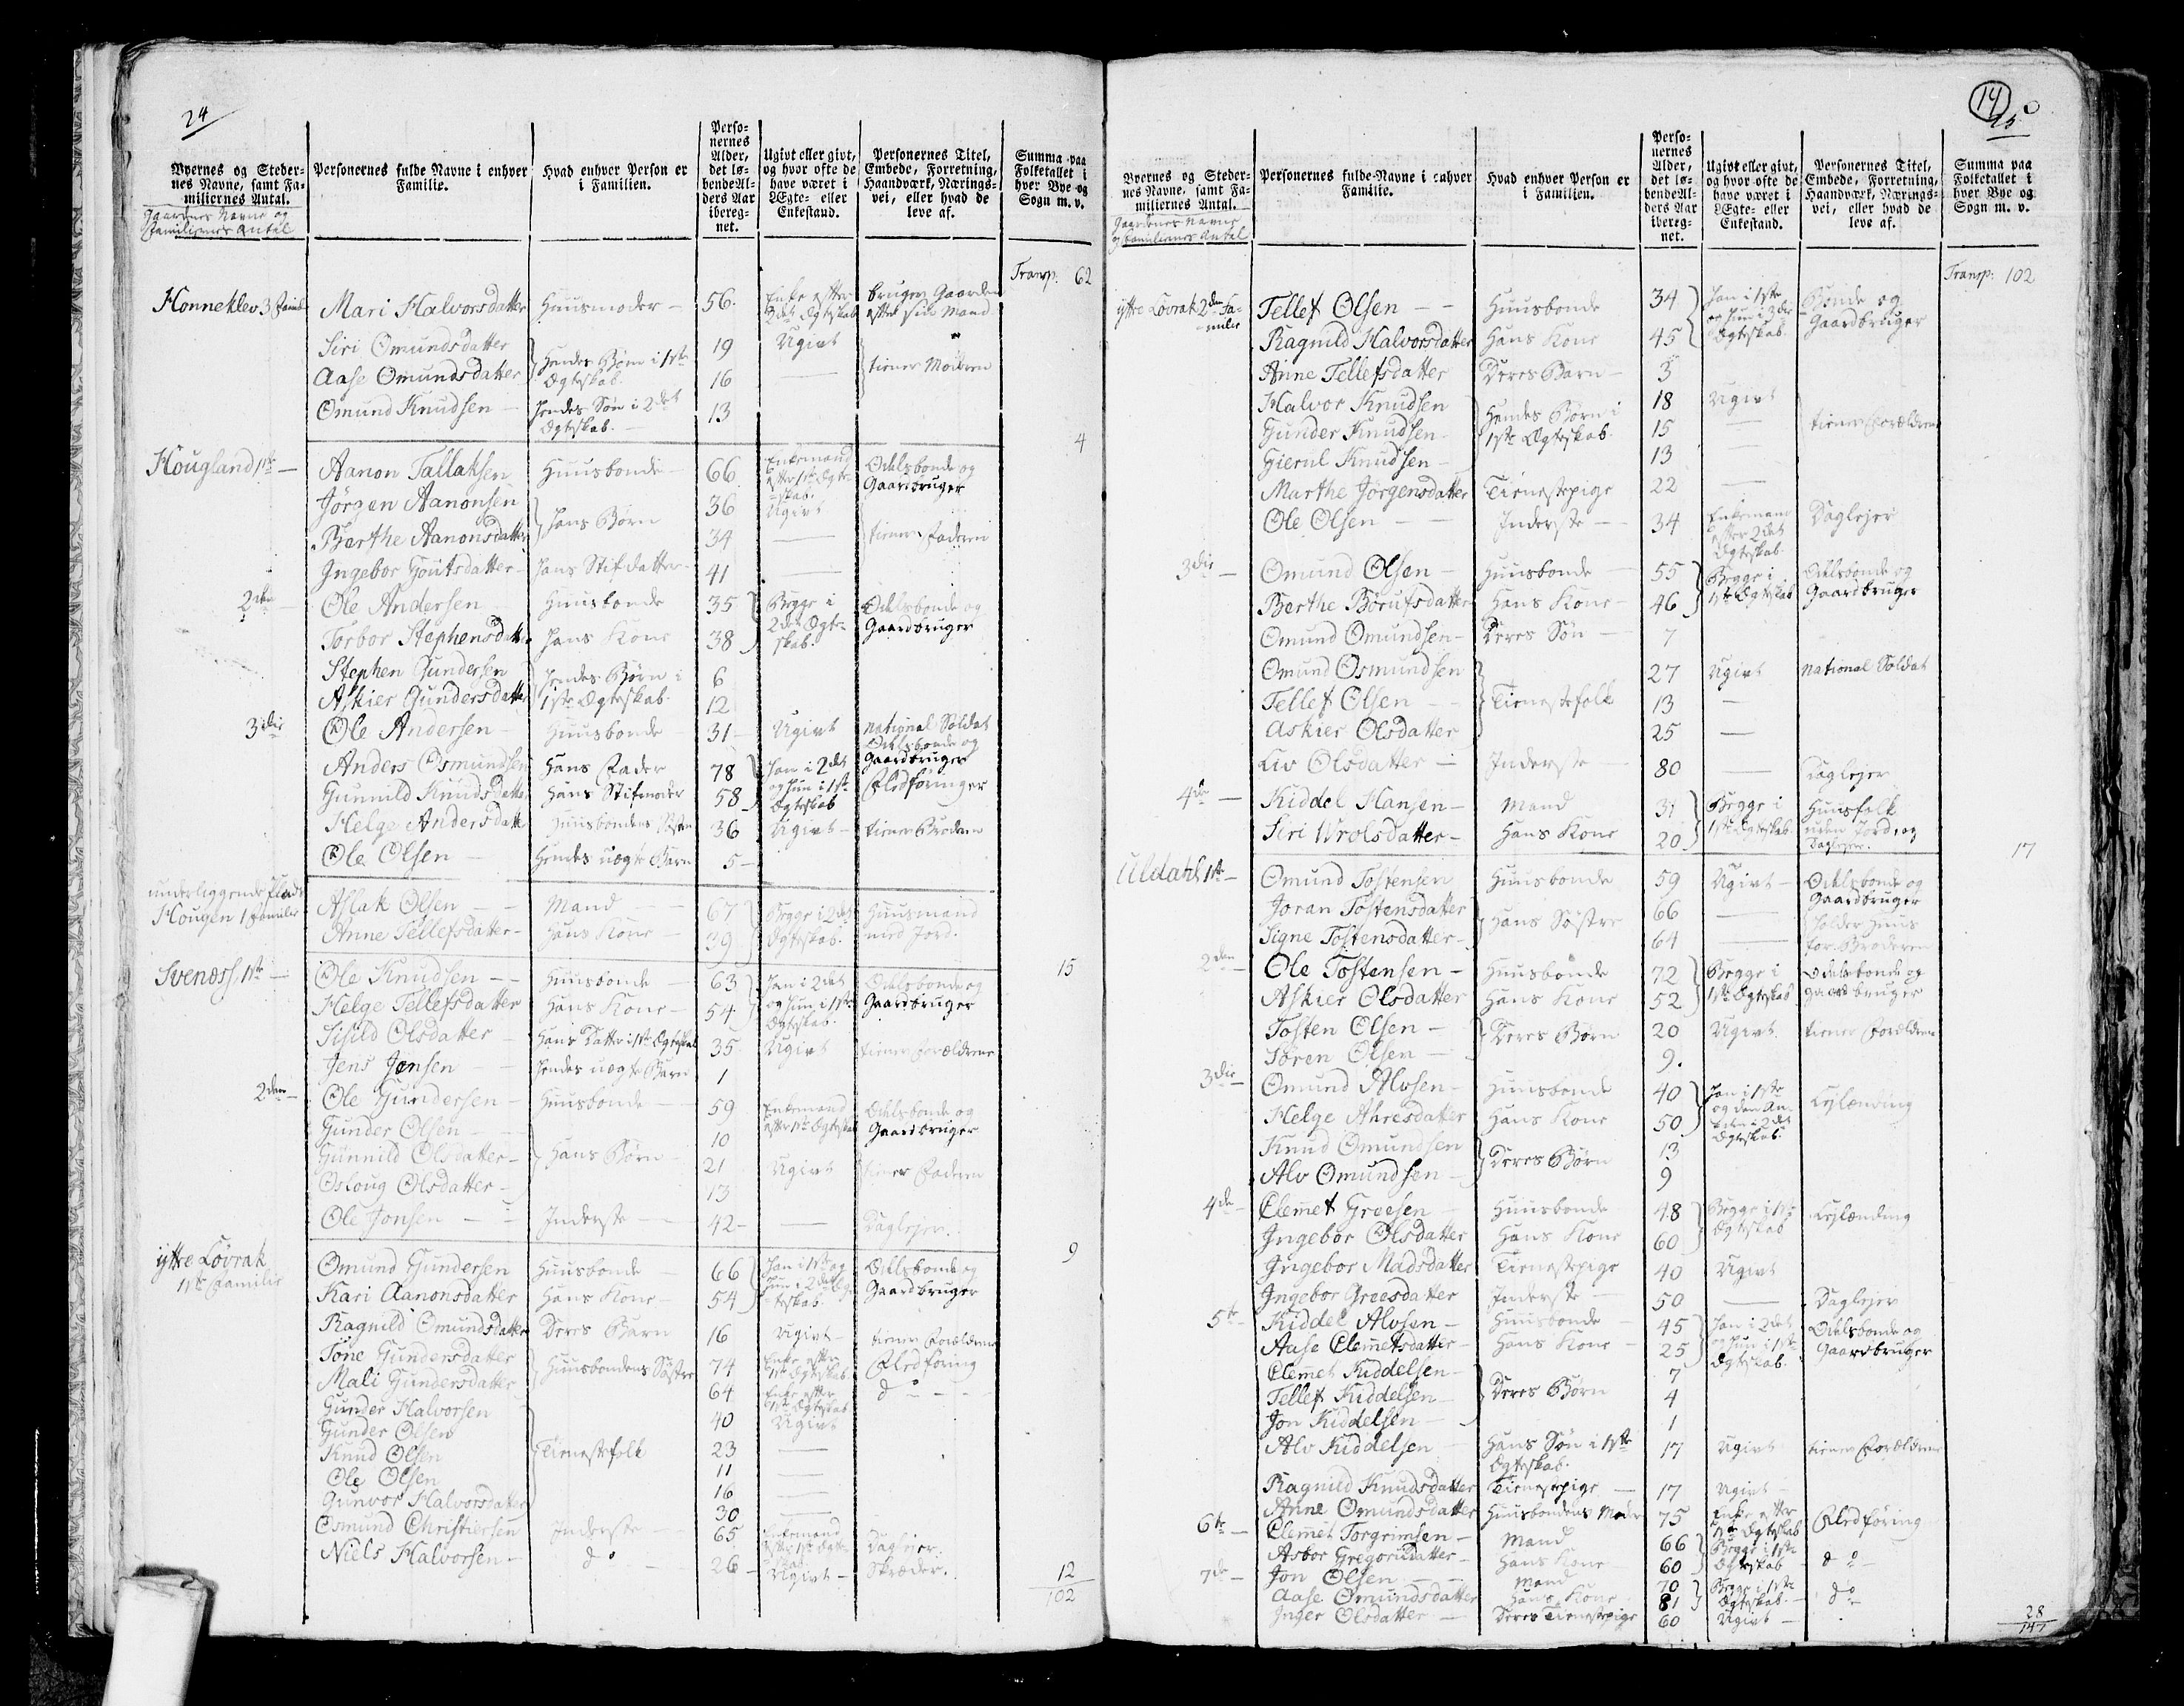 24
Byernes og Steder-
nes Navne, samt Fa-
miliernes Antal.
Gaardenes Navne og
Familiernes Antal
Personernes fulde Navne i enhver
Familie.
Hvad enhver Person er
i Familien.
Perso-
nernes
Alder,
det lø-
bende Al-
ders Aar
ibereg-
net.
Ugivt eller givt,
og hvor ofte de
have været i
Ægte- eller
Enkestand.
Personernes Titel,
Embede, Forretning,
Haandværk, Nærings-
vei, eller hvad de
leve af.
Summa paa
Folketallet i
hver Bye og
Sogn m. v.
Transp: 62
Honneklev 3 Famil: Mari Halvorsdatter Huusmoder 56. Enke efter 2det Ægteskab bruger Gaarden efter sin Mand
Siri Omundsdatter } Hendes Børn i 1ste Ægteskab. 19 Ugivt } tiener Moderen
Aase Omundsdatter 16 —
Omund Knudsen — hendes Søn i 2det Ægteskab. — 13
4
Hougland 1ste — Aanon Tallaksen Huusbonde 66 Enkemand efter 1ste Ægteskab. Odelsbonde og Gaardbruger
Jörgen Aanonsen } hans Börn 36 Ugivt
Berthe Aanonsdatter 34 — tiener Faderen
Ingebor Goutsdatter — hans Stifdatter 41 —
2den — Ole Andersen Huusbonde 35 } Begge i 2det Ægteskab. Odelsbonde og Gaardbruger
Torbor Stephensdatter hans Kone 38
Stephen Gundersen } hendes Børn i 1ste Ægteskab. 6
Askier Gundersdatter 12
3die Ole Andersen Huusbonde 31 Ugivt national Soldat Odelsbonde og Gaardbruger
Anders Osmundsen Hans Fader 78 } han i 2det og hun i 1ste Ægteskab Flodföringer
Gunnild Knudsdatter Hans Stifmoder 58
Helge Andersdatt Huusbondens Söster 36 Ugivt — tiener Broderen
Ole Olsen — Hendes uægte Barn 5 —
underliggende Plads
Hougen 1 Familie Aslak Olsen — Mand 67 } Begge i 2det Ægteskab. Huusmand med Jord.
Anne Tellefsdatter — Hans Kone 39
15
Svenæss 1ste — Ole Knudsen — Huusbonde 63 } han i 2det og hun i 1ste Ægteskab. Odelsbonde og Gaardbruger
Helge Tellefsdatter Hans Kone — 54
Sisild Olsdatter — Hans Datter i 1ste Ægteskab 35 Ugivt tiener Forældrene
Jens Jensen — hendes uægte Barn 1
2den — Ole Gundersen — Huusbonde 59 Enkemand efter 1ste Ægteskab Odelsbonde og Gaardbruger
Gunder Olsen — } Hans Börn — 10
Gunnild Olsdatter — 21 Ugivt tiener Faderen
Osloug Olsdatter — 13
Ole Jonsen — Inderste — 42 — — Daglejer.
9
ÿttre Lövrak
1ste Familie Omund Gundersen Huusbonde 66 } han i 1ste og hun i 2det Ægteskab. Odelsbonde og Gaardbruger
Kari Aanonsdatter Hans Kone — 54
Ragnild Omundsdatter Deres Barn 16 Ugivt — tiener Forældrene
Tone Gundersdatter } Huusbondens Söstre 74 Enke efter 1ste Ægteskab. Flodföring
Mali Gundersdatter 64 Enke efter 1ste Ægteskab do —
Gunder Halvorsen } Tienestefolk 40 Ugivt
Gunder Olsen 23 —
Knud Olsen 11 —
Ole Olsen 16 —
Gunvor Halvorsdatter 30 —
Osmund Christiersen Inderste 65 Enkemand efter 1ste Ægteskab. Daglejer.
Niels Halvorsen — do — 26 — Ugivt — Skræder.
12
102
14
25
Byernes og Steder-
nes Navne, samt Fa-
miliernes Antal.
Gaardenes Navne
og Familiernes Antal
Personernes fulde Navne i enhver
Familie.
Hvad enhver Person er
i Familien.
Perso-
nernes
Alder,
det lø-
bende Al-
ders Aar
ibereg-
net.
Ugivt eller givt,
og hvor ofte de
have været i
Ægte- eller
Enkestand.
Personernes Titel,
Embede, Forretning,
Haandværk, Nærings-
vei, eller hvad de
leve af.
Summa paa
Folketallet i
hver Bye og
Sogn m. v.
Transp: 102
ÿttre Lövrak 2den Familie Tellef Olsen — Huusbonde 34 } han i 1ste og hun i 2det Ægteskab. Bonde og Gaardbruger
Ragnild Halvorsdatter Hans Kone 45
Anne Tellefsdatter Deres Barn — 3
Halvor Knudsen } Hendes Börn i 1ste Ægteskab. 18 Ugivt tiener Forældrene
Gunder Knudsen 15 —
Gierul Knudsen — 13 —
Marthe Jörgensdatter Tienestepige 22 —
Ole Olsen — Inderste — 34 Enkemand efter 2det Ægteskab. Daglejer
3die — Omund Olsen — Huusbonde 55 } Begge i 1ste Ægteskab Odelsbonde og Gaardbruger
Berthe Börufsdatter Hans Kone — 46
Omund Omundsen — Deres Søn — 7
Omund Osmundsen } Tienestefolk 27 Ugivt national Soldat
Tellef Olsen — 13 —
Askier Olsdatter 25 —
Liv Olsdatter — Inderste 80 — Daglejer
4de — Kiddel Hansen — Mand 31 } Begge i 1ste Ægteskab. Huusfolk uden Jord, og Daglejer.
Siri Wrolsdatter — Hans Kone 20
17
Uldahl 1ste — Omund Tostensen Huusbonde 59 Ugivt — Odelsbonde og Gaardbruger
Joran Tostensdatter } Hans Söstre 66 — holder Huus for Broderen
Signe Tostensdatter — 64 —
2den — Ole Tostensen — Huusbonde 72 } Begge i 1ste Ægteskab Odelsbonde og Gaardbruger
Askier Olsdatter Hans Kone 52
Tosten Olsen — } Deres Börn 20 Ugivt. tiener Forældrene
Sören Olsen — 9.
3die — Omund Alvsen — Huusbonde 40 } han i 1ste og den Anden i 2det Ægteskab. Lejlænding
Helge Ahresdatter Hans Kone 50
Knud Omundsen } Deres Börn 13
Alv Omundsen — 9
4de — Clemet Greesen — Huusbonde 48 } Begge i 1ste Ægteskab Lejlænding
Ingebor Olsdatter Hans Kone 60
Ingebor Madsdatter Tienestepige 40 Ugivt
Ingebor Greesdatter Inderste — 50 — Daglejer
5te — Kiddel Alvsen — Huusbonde 45 } han i 2det og hun i 1ste Ægteskab. Odelsbonde og Gaardbruger
Aase Clemetsdatter — Hans Kone 25
Clemet Kiddelsen — } Deres Börn 7
Tellef Kiddelsen — 4
Jon Kiddelsen — 1
Alv Kiddelsen — Hans Søn i 1ste Ægteskab. 17 Ugivt tiener Forældrene
Ragnild Knudsdatter Tienestepige — 17 Ugivt —
Anne Omundsdatter Huusbondens Moder 75 Enke efter 1ste Ægteskab Flodföring
6te — Clemet Torgrimsen — Mand 66 } Begge i 1ste Ægteskab do —
Asbor Gregorisdatter — Hans Kone 60
7de — Jon Olsen — Mand 70 } Begge i 1ste Ægteskab. — do —
Aase Omundsdatter Hans Kone 81
Inger Olsdatter — Deres Tienestepige 60 Ugivt —
28
147